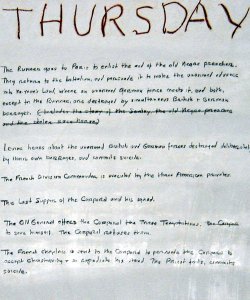 THURSDAY
The Runner goes to Paris to enlist the aid of the old Negro preacher.
They return to the battalion, and persuade it to make the unarmed advance
into No-man's land, where an unarmed German force meets it, and both,
except to the Runner, are destroyed by simultaneous British & German
barrages.
Levine hears about the unarmed British and German forces destroyed deliberately
by their own barrages, and commits suicide.
The French Division Commander is executed by the three American privates.
The Last Supper of the Corporal and his squad.
The Old General offers the Corporal the Three Temptations,
to save himself. The Corporal refuses them.
The French Chaplain is sent to the Corporal to persuade the Corporal to
accept Christianity & so repudiate his stand. The Priest fails, commits
suicide.